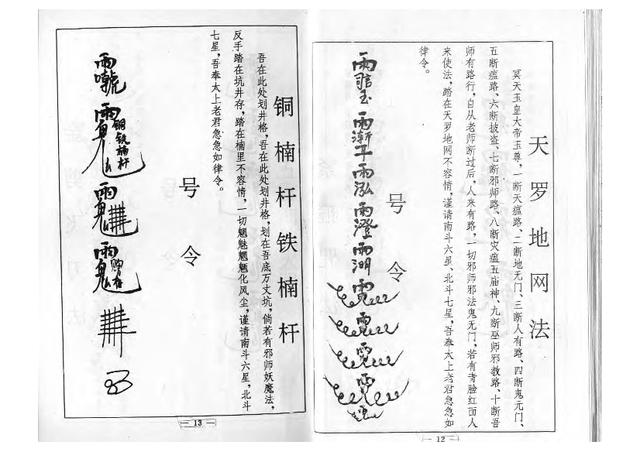 天罗地网法
冥天玉皇大帝玉尊,一断天瘟路、二断地无门、三断人有路、四断鬼无门、
五断瘟路、六断披盗、七断邪师路、八断灾瘟五庙神、九断巫师邪教路、十断吾
师有路行,自从老师断过后,人来有路,一切邪师邪法鬼无门,若有青脸红面人
来使法,踏在天罗地网不容情,谨请南斗六星、北斗七星,吾奉太上老君急急如
律令。
号令
12
铜楠杆铁楠杆
吾在此处划井格,吾在此处划井格,划在吾底万丈坑,倘若有邪师妖魔法,
反手踏在坑井存,踏在楠里不容情,一切魑魅魍魉化风尘,谨请南斗六星,北斗
七星,吾奉太上老君急急如律令。
号令
铜铁楠杆
13